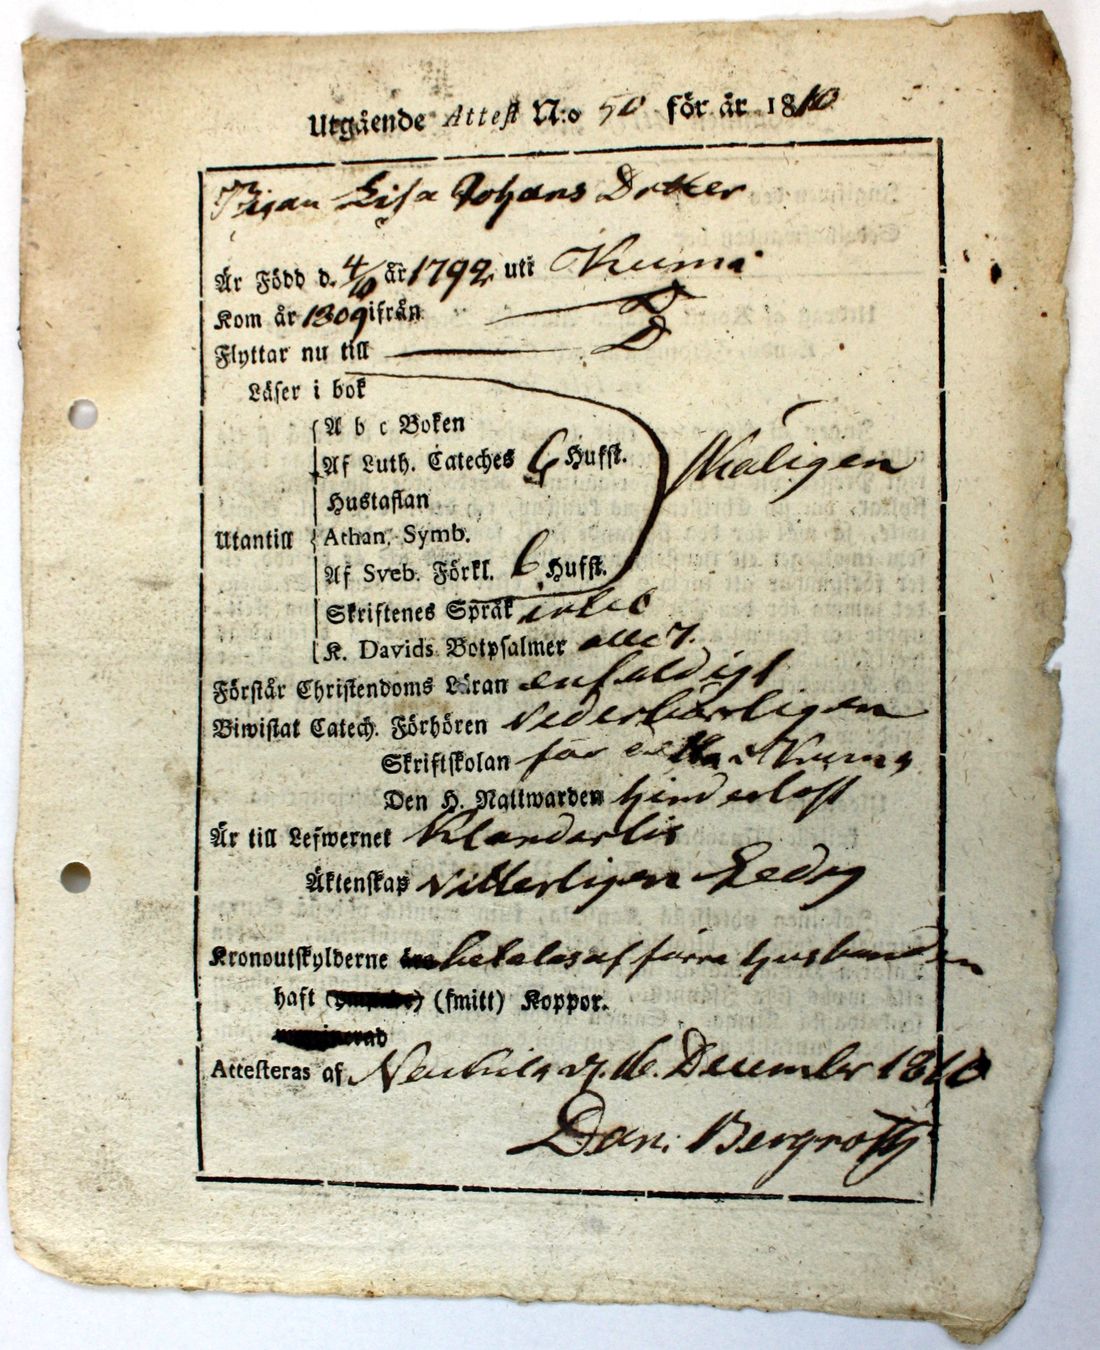 Utgående Attest N:o 50 för år 1810
Pigan Lisa Johans Dotter
Är Född d. 4/10 år 1792 uti Kumo
Kom år 1809 ifrån D
Flyttar nu till D
Läser i bok
A b c Boken
Af Luth. Cateches 6 Hufst. Skäligen
Hustaflan
Utantill Athan. Symb.
Af Sveb. Förkl. 6 Hufst.
Skriftenes Språk
K. Davids Botpsalmer alle 7.
Förstår Christendoms Läran enfaldigt
Biwistat Catech. Förhören vederbörligen
Skriftskolan för detta i Kumo
Den H. Nattwarden hinderlöst
Är till Lefwernet Klanderlös
Äktenskap vitterligen Ledig
Kronoutskylderne betalas af förra husbonden
haft (smitt) Koppor.
Attesteras af d. December 1810
Dan. Bergroth